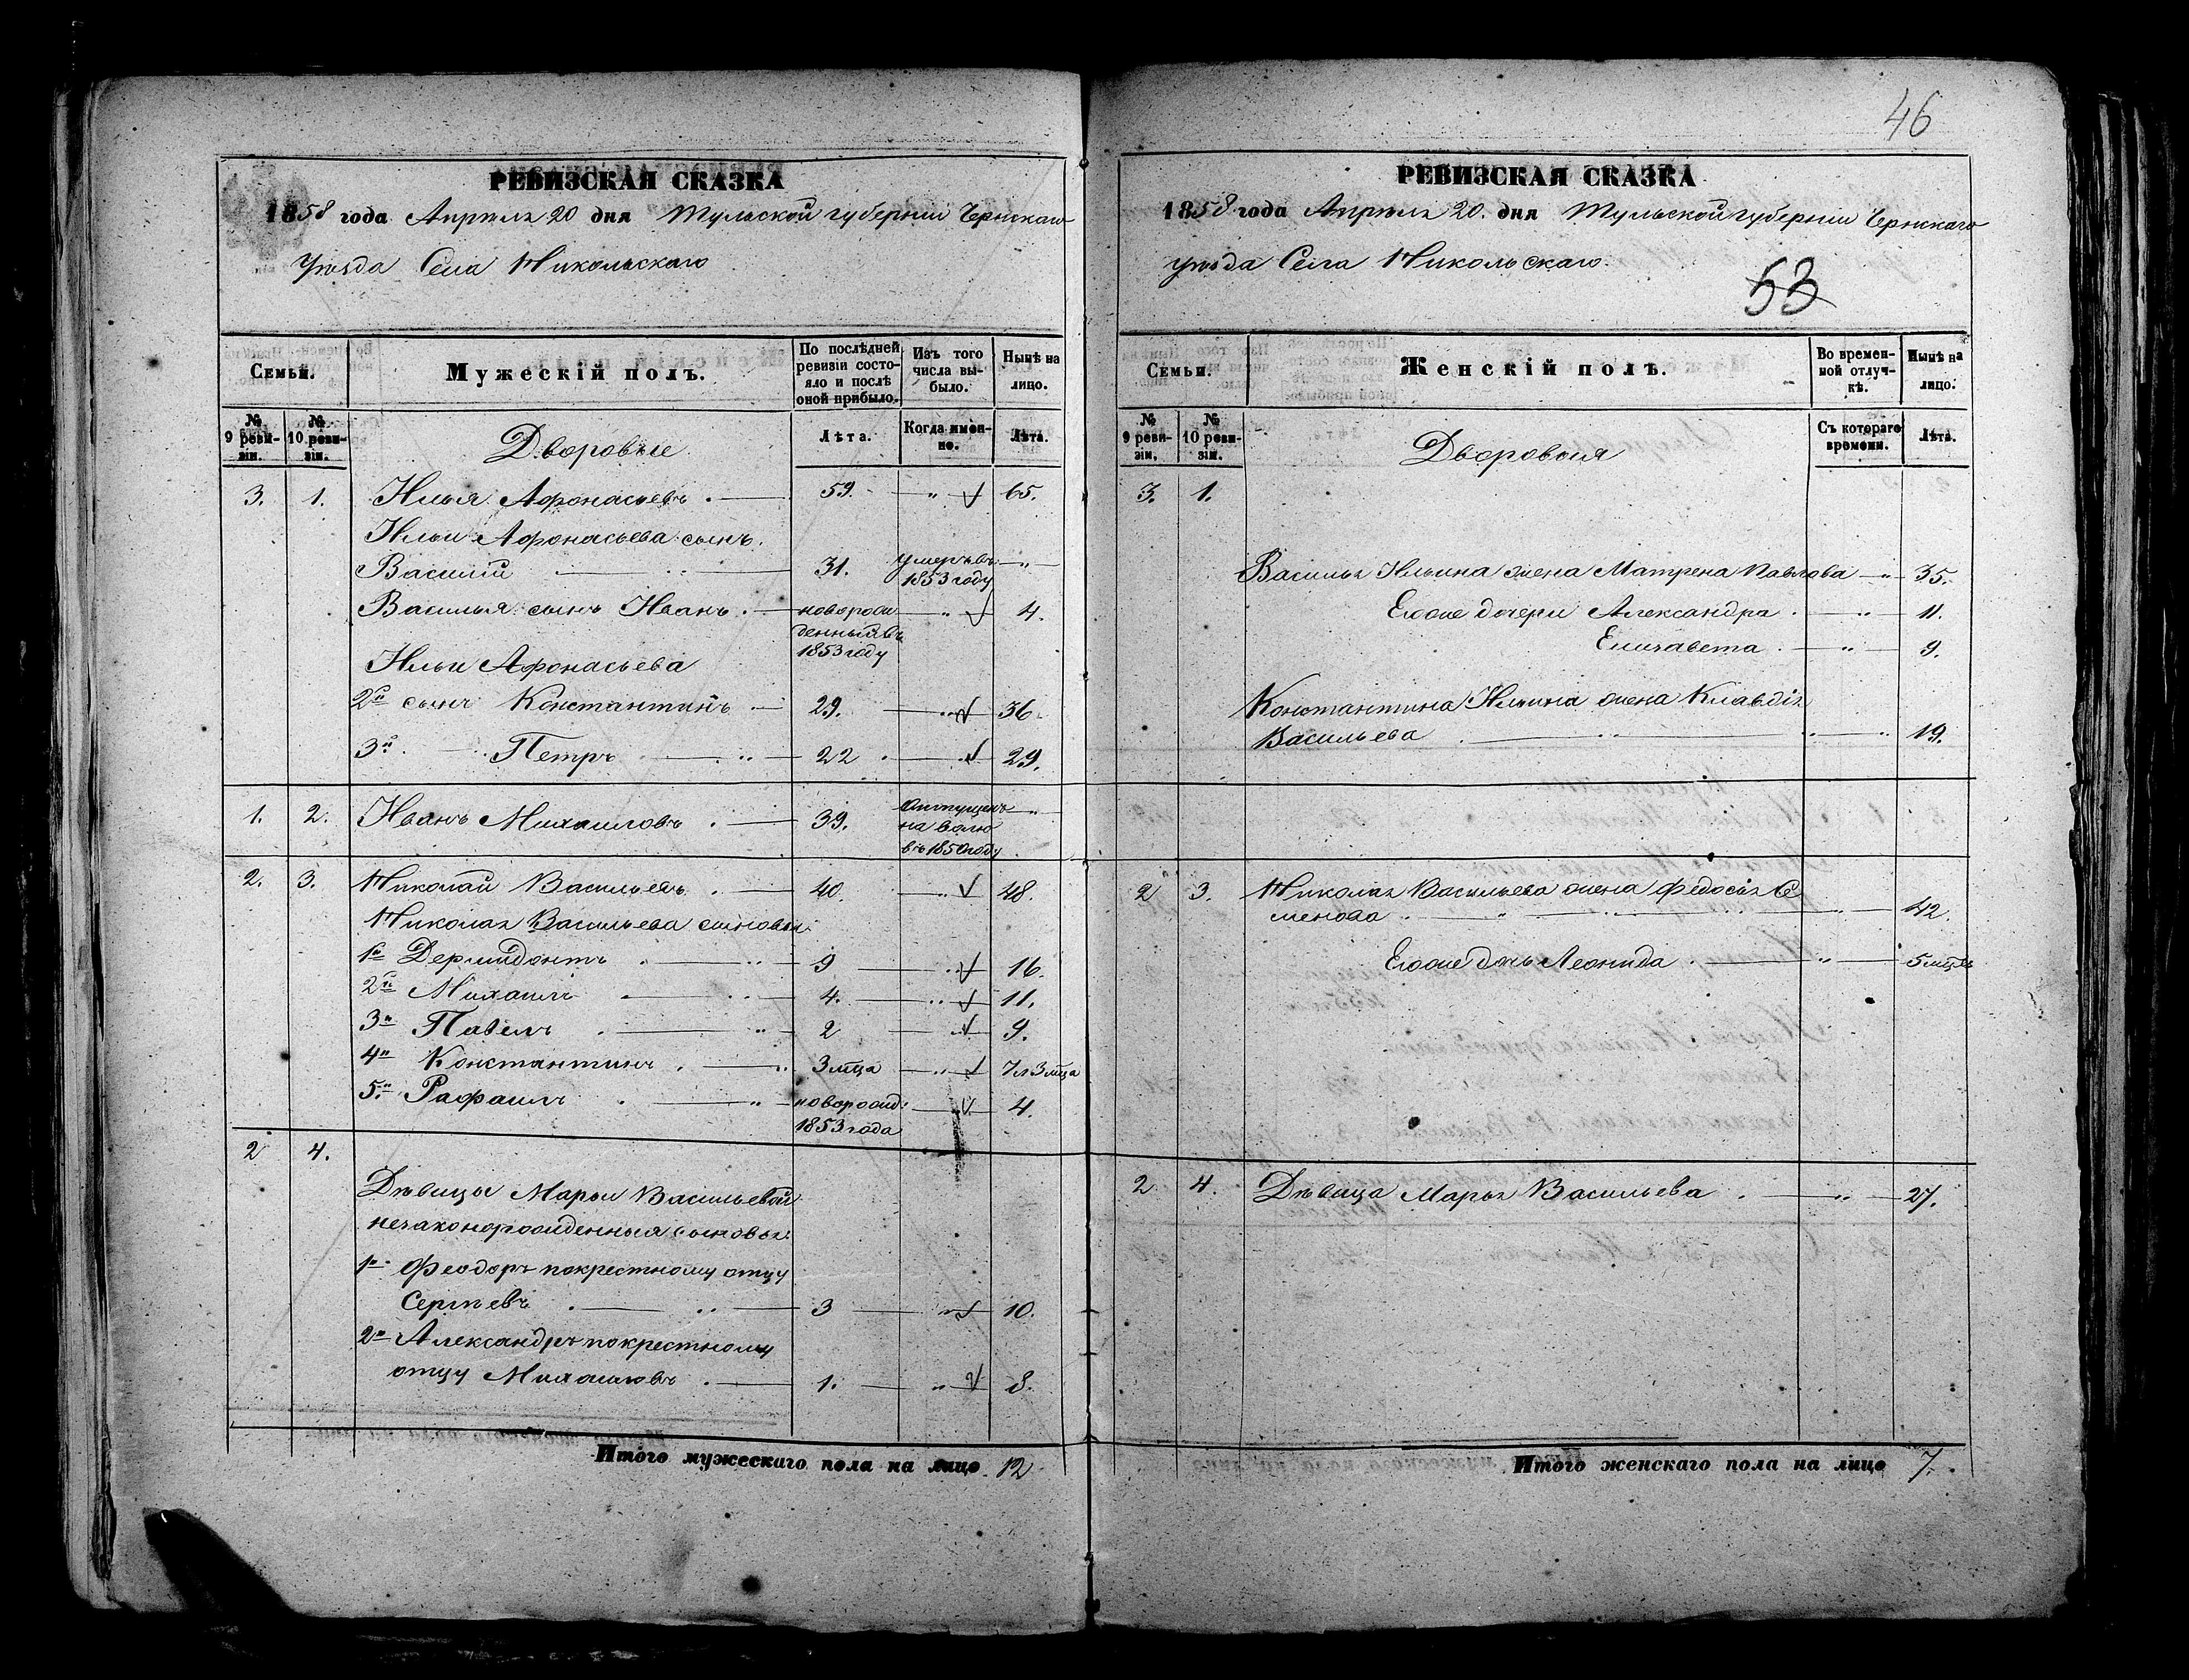 РЕВИЗСКАЯ СКАЗКА
1858 года Апрѣля 20 дня Тульской губерніи Чернскаго
Уѣзда Села Никольскаго
Семьи.
Мужескій полъ.
По послѣдней ревизіи состояло и послѣ оной прибыло.
Изъ того числа выбыло.
Нынѣ на лицо.
№ 9 ревизіи.
№ 10 ревизіи.
Дворовые
Лѣта.
Когда именно.
Лѣта.
3. 1. Илья Афонасьевъ. 59. " 65.
Ильи Афонасьева сынъ.
Василій 31. умеръ въ 1853 году "
Василья сынъ Иванъ. новорожденный въ 1853 году " 4.
Ильи Афонасьева
2й сынъ Константинъ 29. " 36.
3й " Петръ 22. " 29.
1. 2. Иванъ Михаиловъ. 39. Отпущенъ на волю въ 1850 году "
2. 3. Николай Васильевъ. 40. " 48.
Николая Васильева сыновья
1й Дермидонтъ. " 9 " 16.
2й Михаилъ " 4. " 11.
3й Павелъ. " 2 " 9.
4й Константинъ. " 3 мца " 7 л 3 мца
5й Рафаилъ. " новорожд: 1853 года " 4.
2 4.
Дѣвицы Марьи Васильевой
незаконорожденныя сыновья:
1й Феодоръ по крестному отцу
Сергѣевъ. " 3 " 10.
2й Александръ по крестному
отцу Михаиловъ. 1. " 8.
Итого мужескаго пола на лицо 12
46
РЕВИЗСКАЯ СКАЗКА
1858 года Апрѣля 20. дня Тульской губерніи Чернскаго
уѣзда Села Никольскаго.
53
Семьи.
Женскій полъ.
Во временной отлучкѣ.
Нынѣ на лицо.
№ 9 ревизіи.
№ 10 ревизіи.
Дворовыя
Съ котораго времени.
Лѣта.
3. 1.
Василья Ильина жена Матрена Павлова " 35.
Егоже дочери Александра. " 11.
Елизавета. " 9.
Константина Ильина жена Клавдія
Васильева. " 19.
2 3. Николая Васильева жена Федосья Се
менова. " 42.
Егоже дочь Леонида. " 5 мцвъ
2 4. Дѣвица Марья Васильева. " 27.
Итого женскаго пола на лицо 7.